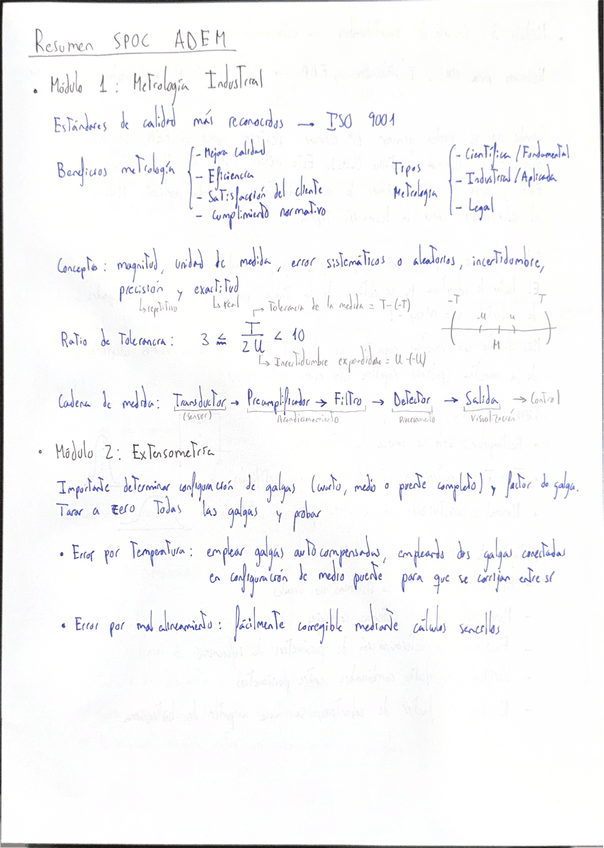 Resumen SPOC ADEM
• Módulo 1: Metrología Industrial
Estándares de calidad más reconocidos → ISO 9001
Beneficios metrología
- Mejora calidad
- Eficiencia
- Satisfacción del cliente
- Cumplimiento normativo
Tipos Metrología
- Científica / Fundamental
- Industrial / Aplicada
- Legal
Conceptos: magnitud, unidad de medida, error sistemáticos o aleatorios, incertidumbre,
precisión y exactitud
↳ repetitivo ↳ real
→ Tolerancia de la medida = T-(-T)
Ratio de Tolerancia: 3 ≤ T/2U < 10
↳ Incertidumbre expandida = U-(-U)
-T -u u T
M
Cadena de medida: Transductor → Preamplificador → Filtro → Detector → Salida → Control
(sensor) Acondicionamiento Procesamiento Visualización
• Módulo 2: Extensometría
Importante determinar configuración de galgas (cuarto, medio o puente completo) y factor de galga.
Tarar a zero todas las galgas y probar
• Error por Temperatura: emplear galgas autocompensadas, empleando dos galgas conectadas
en configuración de medio puente para que se corrijan entre sí
• Error por mal alineamiento: fácilmente corregible mediante cálculos sencillos